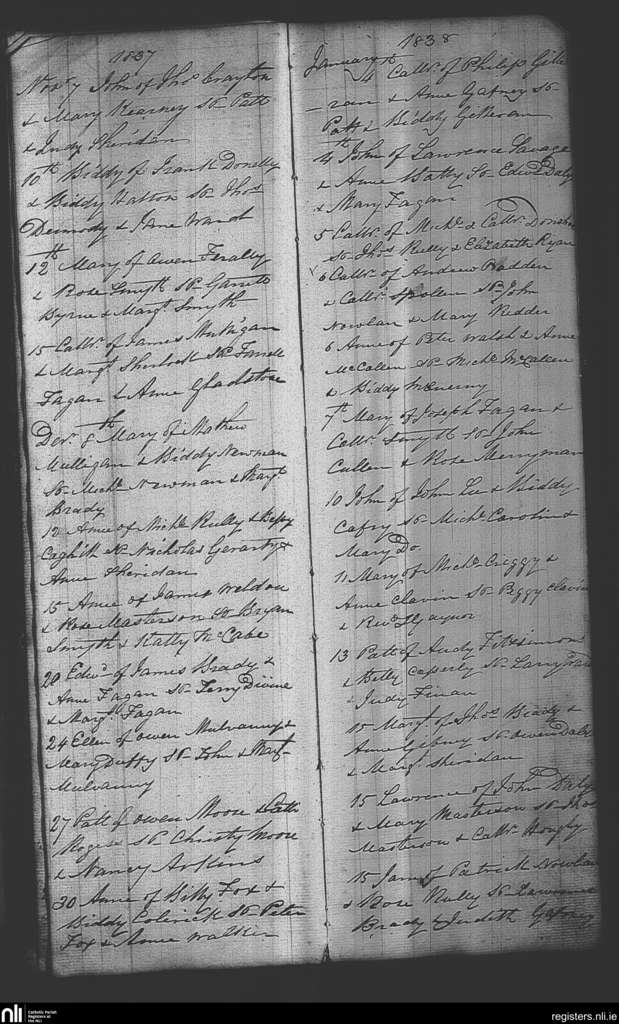 1837
Novr 7 John of Thos Crayton
& Mary Kearney Sp Patt
& Judy Sheridan
10th Biddy of Frank Donelly
& Biddy Hatton Sp Thos
Dermody & Jane Ward
12th Mary of Owen Ferally
& Rose Smyth Sp Garrett
Byrne & Margt Smyth
15 Cathr of James Mulligan
& Margt Sherlock Sp Farrell
Fagan & Anne Gladstone
Decr 8th Mary of Mathew
Mulligan & Biddy Newman
Sp Michl Newman & Margt
Brady
12 Anne of Michl Rielly & Betsy
Sp Nicholas Gerarty &
Anne Sheridan
15 Anne of James Weldon
& Rose Masterson Sp Bryan
Smyth & Katty McCabe
20 Edwd of James Brady &
Anne Fagan Sp Terry Divine
& Margt Fagan
24 Ellen of Owen Mulvanny &
Mary Duffy Sp John & Margt
Mulvanny
27 Patt of Owen Moore & Cath
Rogers Sp Christy Moore
& Nancy Arkins
30 Anne of Billy Fox &
Biddy Colerick Sp Peter
Fox & Anne Walker
1838
January 4th Cathr of Philip Gilk
-ran & Anne Gafney Sp
Patt & Biddy Gilkeran
4th John of Lawrence Savage
& Anne Batty Sp Edwd Daly
& Mary Fagan
5 Cathr of Michl & Cathr Donohu
Sp Thos Rielly & Elizabeth Ryan
6 Cathr of Andrew Madden
& Cathr Spollen Sp John
Nowlan & Mary Kedder
6 Anne of Peter Walsh & Anne
McCallen Sp Michl McCallen
& Biddy McEnerny
7th Mary of Joseph Fagan &
Cathr Smyth Sp John
Cullen & Rose Merryman
10 John of John Lee & Biddy
Cafry Sp Michl Carolin &
Mary Do
11 Mary of Michl Creggy &
Anne Clavin Sp Peggy Clavin
& Revd H Gaynor
13 Patt of Andy Fitzsimons
& Betty Casserly Sp Larry Ward
& Judy Finan
15 Margt of Thos Biddy &
Anne Gibny Sp Owen Daly
& Margt Sheridan
15 Lawrence of John Daly
& Mary Masterson Sp Thos
Masterson & Cathr Hougty
15 James of Patrick Nowlan
& Rose Rielly Sp Lawrence
Brady & Judith Gafney
nli Catholic Parish
Registers at
the NLI
registers.nli.ie